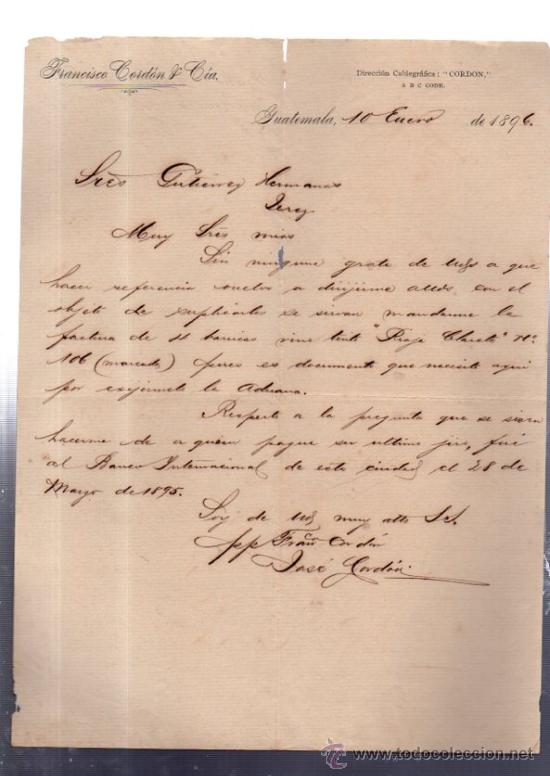 Francisco Cordón & Cía.
Dirección Cablegráfica: "CORDON,"
A B C CODE.
Guatemala, 10 Enero de 1896.
Sres Gutierrez Hermanos
Jerez
Muy Sres mios
Sin ninguna grata de Uds a que
hacer referencia vuelvo a dirijirme a Uds con el
objeto de suplicarles se sirvan mandarme la
factura de 4 barricas vino tinto "Rioja Clarete" No.
106 (marcada) pues es documento que necesito aqui
por exijirmelo la Aduana.
Respecto a la pregunta que se sirven
hacerme de a quien pague su ultimo jiro, fué
al Banco Internacional de esta ciudad el 28 de
Marzo de 1895.
Soy de Uds muy atto S.S.
pp Franco Cordón
José Cordón
todocoleccion.net